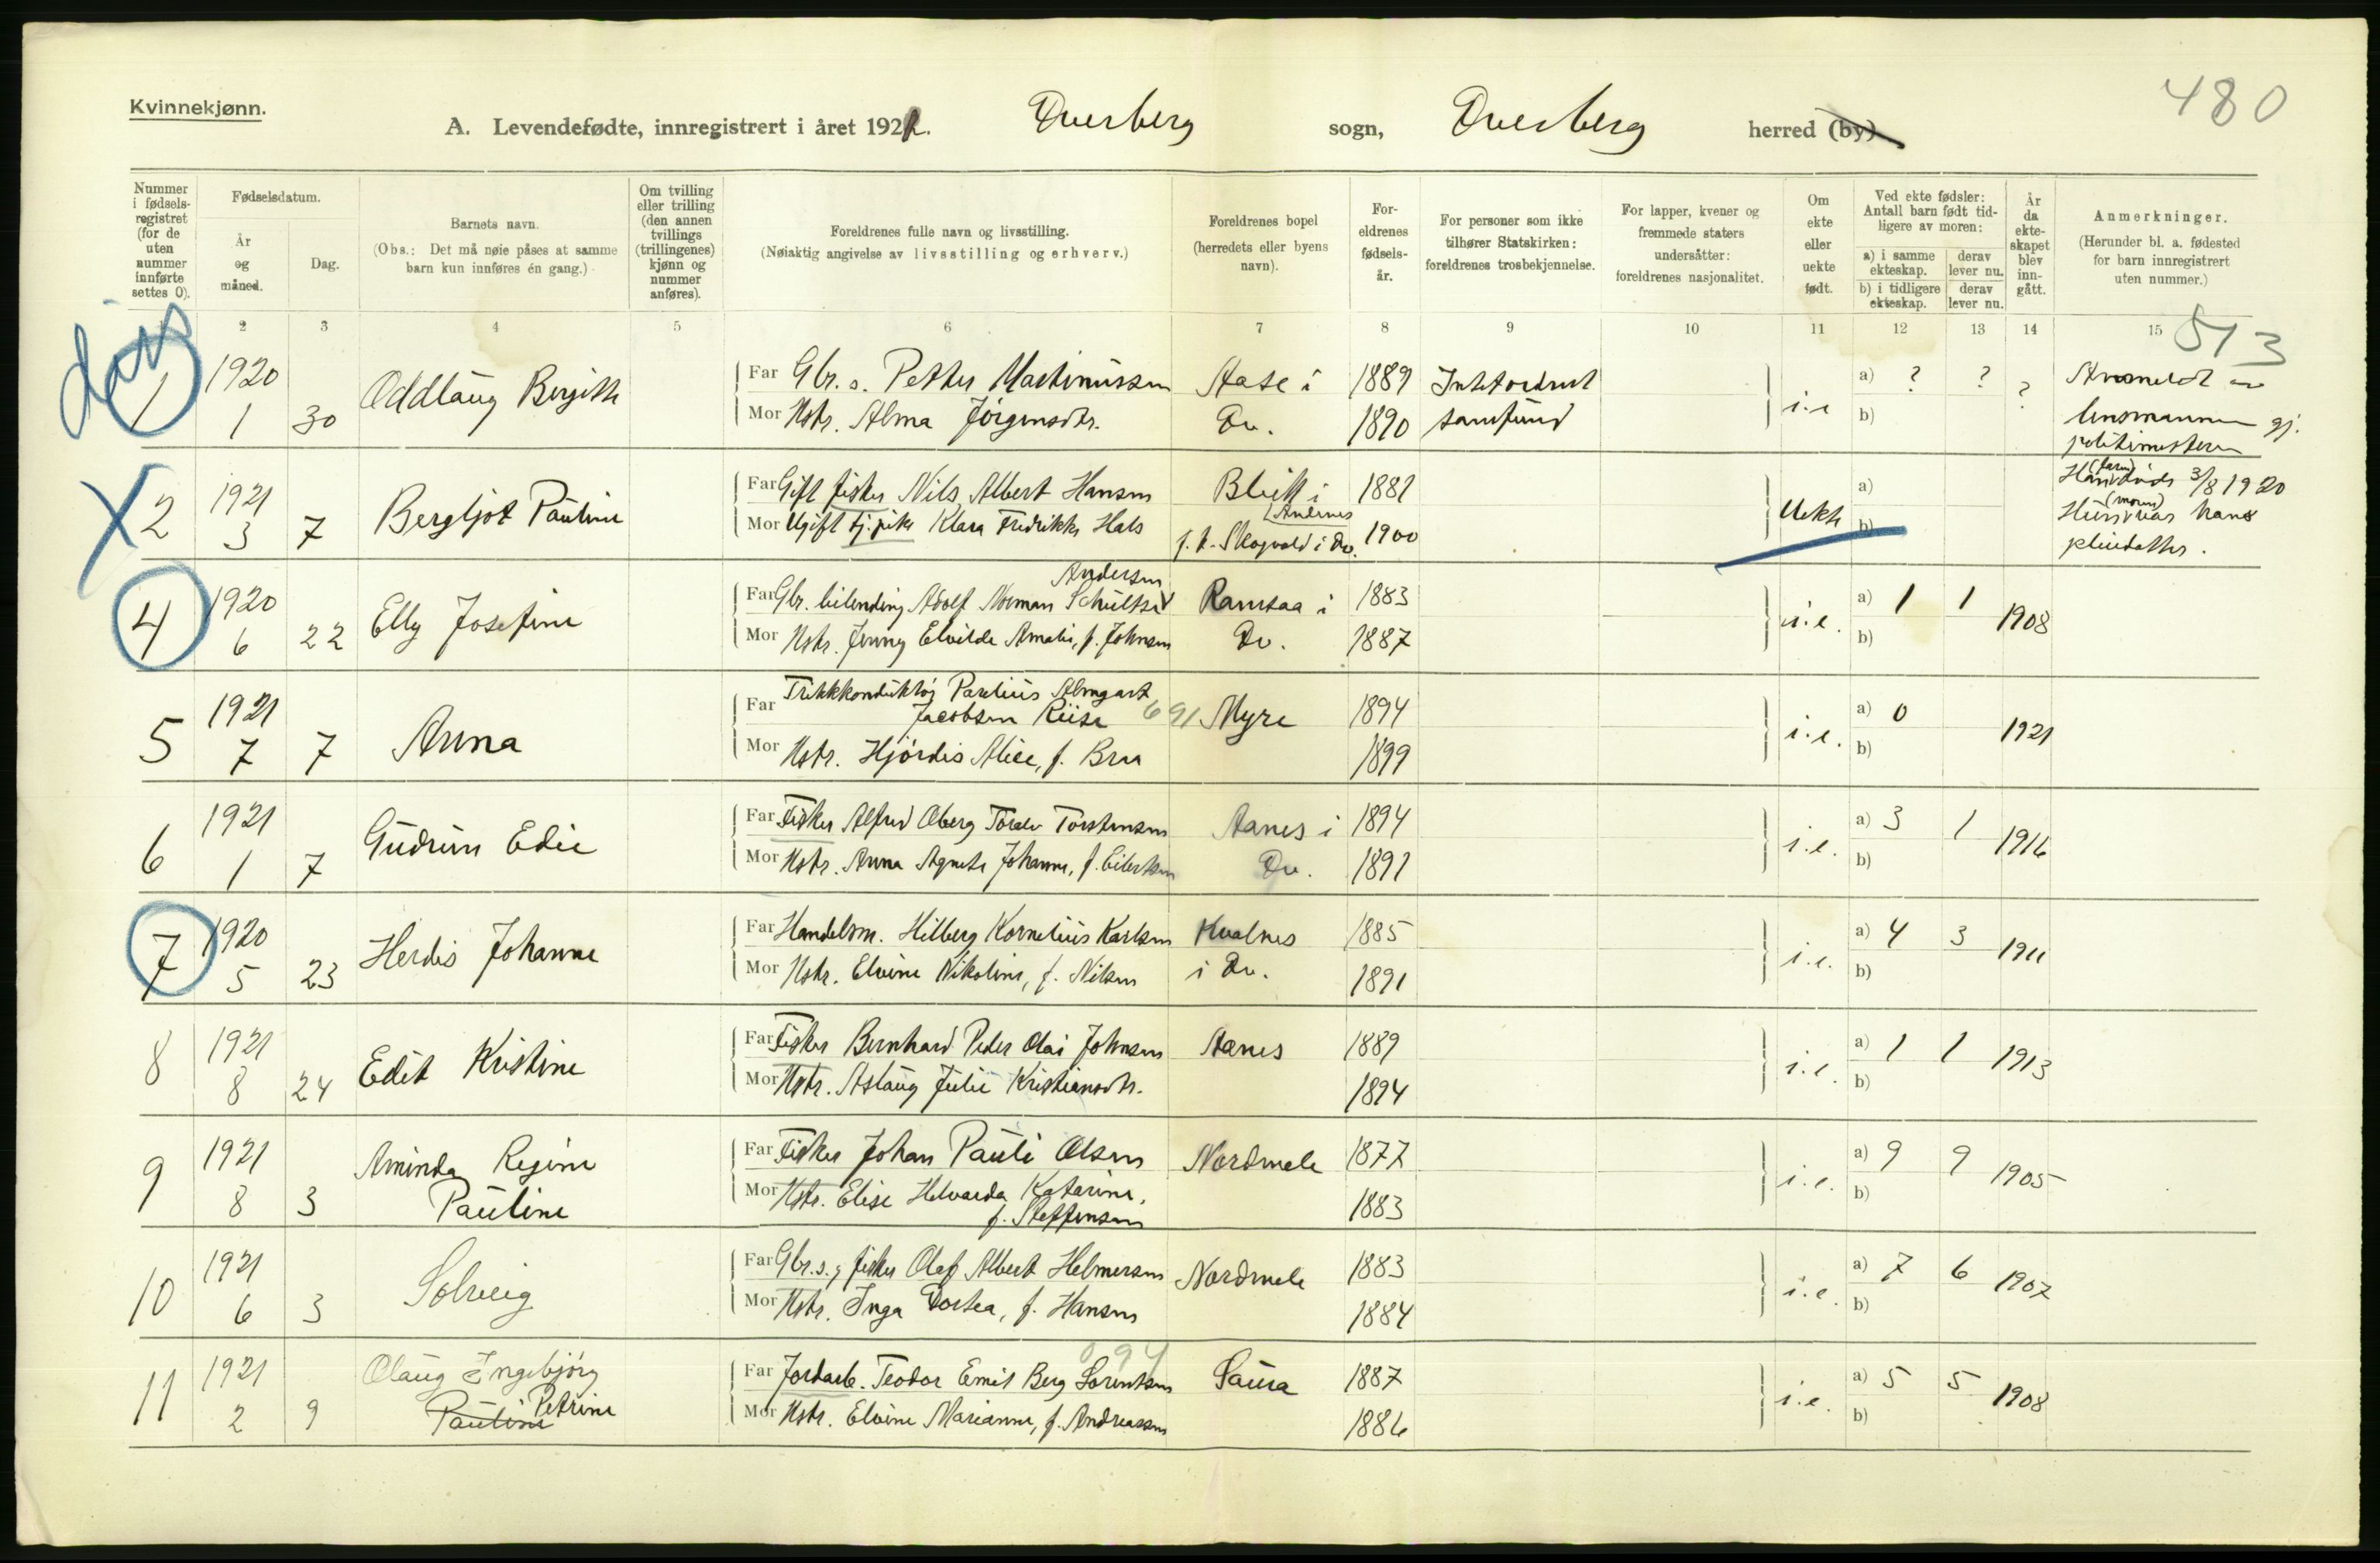 480
Kvinnekjønn.
A. Levendefødte, innregistrert i året 1921. Dverberg sogn, Dverberg herred (by)
Nummer i fødsels-registret (for de uten nummer innførte settes 0).
Fødselsdatum.
År og måned.
Dag.
Barnets navn.
(Obs.: Det må nøie påses at samme barn kun innføres én gang.)
Om tvilling eller trilling (den annen tvillings (trillingenes) kjønn og nummer anføres).
Foreldrenes fulle navn og livsstilling.
(Nøiaktig angivelse av livsstilling og erhverv.)
Foreldrenes bopel (herredets eller byens navn).
For-eldrenes fødsels-år.
For personer som ikke tilhører Statskirken: foreldrenes trosbekjennelse.
For lapper, kvener og fremmede staters undersåtter: foreldrenes nasjonalitet.
Om ekte eller uekte født.
Ved ekte fødsler: Antall barn født tid-ligere av moren:
a) i samme ekteskap.
derav lever nu.
b) i tidligere ekteskap.
derav lever nu.
År da ekte-skapet blev inn-gått.
Anmerkninger.
(Herunder bl. a. fødested for barn innregistrert uten nummer.)
1 2 3 4 5 6 7 8 9 10 11 12 13 14 15
513
1 1920 1 30 Oddlaug Bergitte
Far Gbr. s. Petter Martinussen Aase i 1889
Mor Hstr. Alma Jörgensdtr. Dv. 1890 samfund
i.e a) ? ? ? b)
lensmannen gj.
politimesteren
2 1921 3 7 Bergljot Pauline
Far Gift fisker Nils Albert Hansen Bleik i 1881
Mor Ugift tj.pike Klara Fredrikke Hals Andenes
f. t. Skogvold i Dv. 1900
Uekte a) b)
(faren) 3/8 1920
(moren) Hun var hans
pleiedatter.
4 1920 6 22 Elly Josefine
Andersen
Far Gbr. Adolf Norman Schultse Ramsaa i 1883
Mor Hstr. Jenny Elvilde Amalie, f. Johnsen Dv. 1887
i.e. a) 1 1 1908 b)
5 1921 7 7 Anna
Far Trikkkonduktör Paulius Almgart
Jacobsen Riise 691 Myre 1894
Mor Hstr. Hjördis Alice, f. Bru 1899
i.e. a) 0 1921 b)
6 1921 1 7 Gudrun Edie
Far Fisker Alfred Oberg Torstensen Aanes i 1894
Mor Hstr. Anna Agnete Johanne, f. Eilertsen Dv. 1891
i.e. a) 3 1 1916 b)
7 1920 5 23 Herdis Johanne
Far Handelsm. Hilberg Kornelius Karlsen Kvalnes 1885
Mor Hstr. Elvine Nikoline, f. Nilsen i Dv. 1891
i.e. a) 4 3 1911 b)
8 1921 8 24 Edit Kristine
Far Fisker Bernhard Peder Olai Johnsen Aanes 1889
Mor Hstr. Aslaug Julie Kristiansdtr. 1894
i.e. a) 1 1 1913 b)
9 1921 8 3 Aminda Regine
Pauline
Far Fisker Johan Pauli Olsen Nordmele 1877
Mor Hstr. Elise Helvarda Katarine,
f. Steffensen 1883
i.e. a) 9 9 1905 b)
10 1921 6 3 Solveig
Far Gbr.s., fisker Olaf Albert Helmersen Nordmele 1883
Mor Hstr. Inga Dortea, f. Hansen 1884
i.e. a) 7 6 1907 b)
11 1921 2 9 Olaug Ingebjörg
Pauline Petrine
Far Jordarb. Teodor Emil Berg Sorentsen Saura 1887
Mor Hstr. Elvine Marianne, f. Andreassen 1886
i.e. a) 5 5 1908 b)